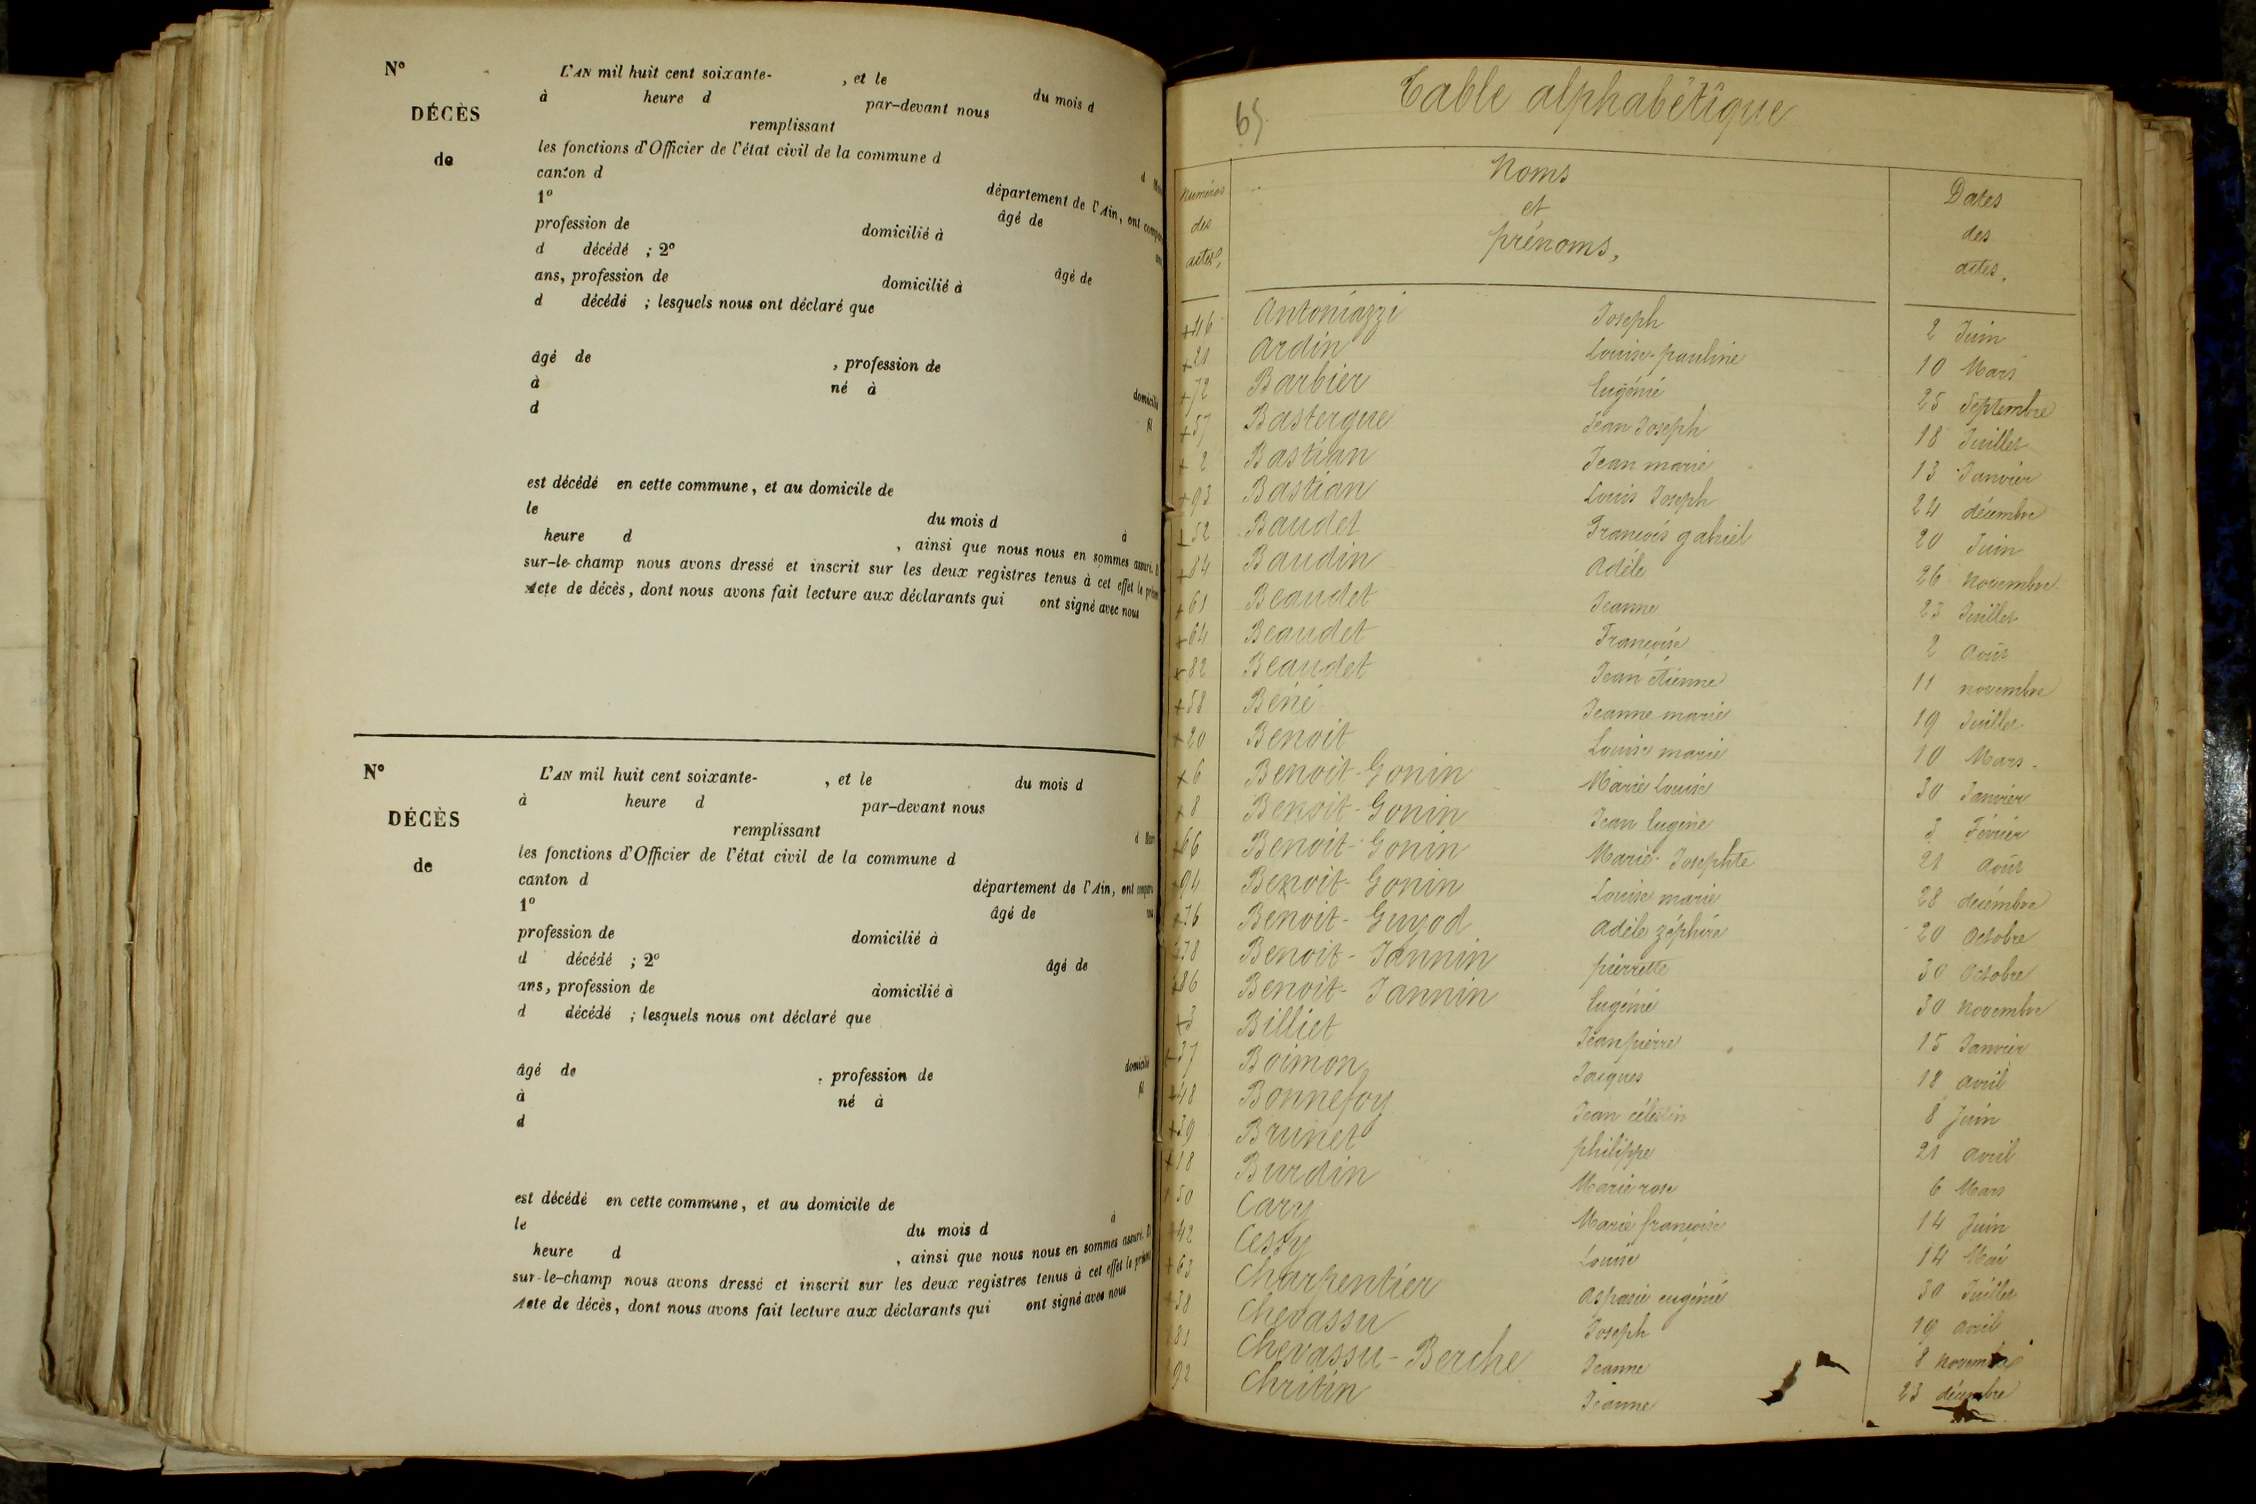 N° L'AN mil huit cent soixante- , et le du mois d
à heure d par-devant nous
DÉCÈS remplissant
les fonctions d'Officier de l'état civil de la commune d
de canton d département de l'Ain, ont
1° âgé de
profession de domicilié à
d décédé ; 2° âgé de
ans, profession de domicilié à
d décédé ; lesquels nous ont déclaré que
âgé de , profession de domicilié
à né à fil
d
est décédé en cette commune, et au domicile de
le du mois d à
heure d , ainsi que nous nous en sommes assuré. Et
sur-le-champ nous avons dressé et inscrit sur les deux registres tenus à cet effet le présent
Acte de décès, dont nous avons fait lecture aux déclarants qui ont signé avec nous
N° L'AN mil huit cent soixante- , et le du mois d
à heure d par-devant nous
DÉCÈS remplissant
les fonctions d'Officier de l'état civil de la commune d
de canton d département de l'Ain, ont
1° âgé de
profession de domicilié à
d décédé ; 2° âgé de
ans, profession de domicilié à
d décédé ; lesquels nous ont déclaré que
âgé de , profession de domicilié
à né à fil
d
est décédé en cette commune, et au domicile de
le du mois d à
heure d , ainsi que nous nous en sommes assuré. Et
sur-le-champ nous avons dressé et inscrit sur les deux registres tenus à cet effet le présent
Acte de décès, dont nous avons fait lecture aux déclarants qui ont signé avec nous
65
Table alphabétique
Numéros des actes, Noms et prénoms, Dates des actes,
+46 Antoniazzi Joseph 2 Juin
+21 Ardin Louise-pauline 10 Mars
+72 Barbier Eugénie 25 Septembre
+57 Bastergue Jean Joseph 18 Juillet
+2 Bastian Jean marie 13 Janvier
+93 Bastian Louis Joseph 24 décembre
+52 Baudet François gabriel 20 Juin
+84 Baudin Adèle 26 Novembre
+61 Beaudet Jeanne 23 Juillet
+64 Beaudet Françoise 2 Août
+82 Beaudet Jean étienne 11 novembre
+58 Béné Jeanne marie 19 Juillet
+20 Benoit Louise marie 10 Mars
+6 Benoit-Gonin Marie Louise 30 Janvier
+8 Benoit-Gonin Jean Eugène 3 Février
+66 Benoit-Gonin Marie-Josephte 21 Août
+94 Benoit-Gonin Louise marie 28 décembre
+76 Benoit-Guyod Adèle zéphire 20 Octobre
+78 Benoit-Jannin pierrette 30 Octobre
+86 Benoit-Jannin Eugénie 30 Novembre
+3 Billiet Jean pierre 15 Janvier
+37 Boimon Jacques 18 avril
+48 Bonnefoy Jean célestin 8 Juin
+39 Brunet philippe 21 avril
+18 Burdin Marie rose 6 Mars
+50 Cary Marie françoise 14 Juin
+42 Cessy Louise 14 Mai
+63 Charpentier Aspasie eugénie 30 Juillet
+38 Chevassu Joseph 19 avril
81 Chevassu-Berche Jeanne 8 Novembre
92 Chritin Jeanne 23 décembre